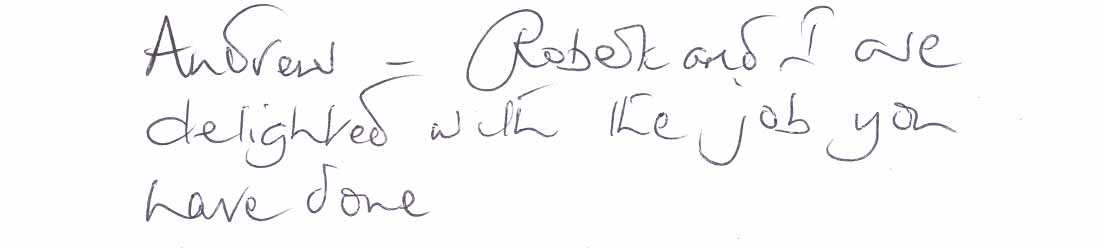 Andrew - Robert and I are
delighted with the job you
have done